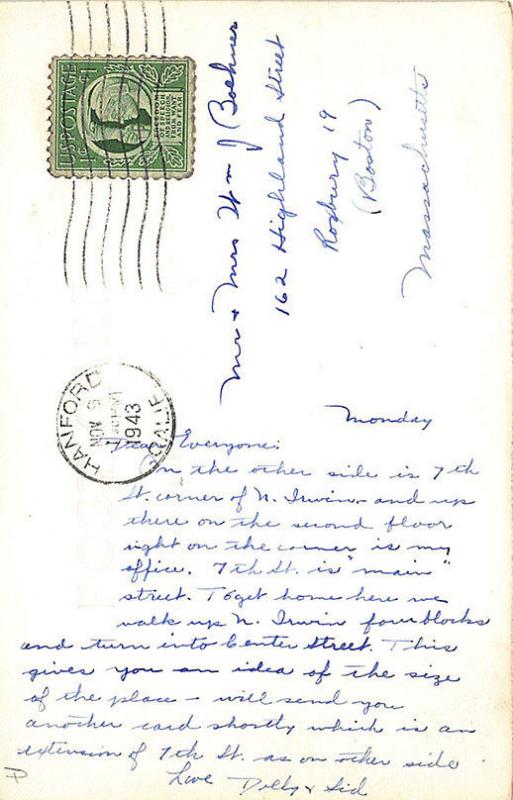 US POSTAGE
1¢
FREEDOM
OF SPEECH
AND RELIGION
FROM WANT
AND FEAR
Mr & Mrs Wm J Boehner
162 Highland Street
Roxbury 19
(Boston)
Massachusetts
HANFORD
NOV 8
PM
1943
CALIF.
Monday
Dear Everyone:
On the other side is 7th
St. corner of N. Irwin - and up
there on the second floor
right on the corner is my
office. 7th St. is "main"
street. To get home here we
walk up N. Irwin four blocks
and turn into Center Street. This
gives you an idea of the size
of the place - will send you
another card shortly which is an
extension of 7th St. as on other side
Love Dolly & Sid